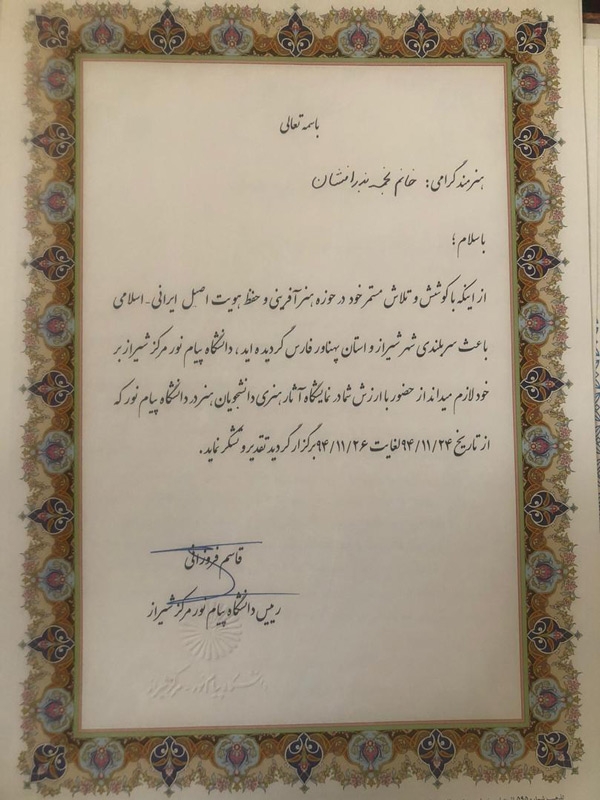 باسمه تعالی
هنرمند گرامی: خانم نجمه بدرافشان
باسلام؛
از اینکه با کوشش و تلاش مستمر خود در حوزه هنرآفرینی و حفظ هویت اصل ایرانی-اسلامی
باعث سربلندی شهر شیراز و استان پهناور فارس گردیده اید، دانشگاه پیام نور مرکز شیراز بر
خود لازم میداند از حضور با ارزش شما در نمایشگاه آثار هنری دانشجویان هنر در دانشگاه پیام نور که
از تاریخ ۹۴/۱۱/۲۴ لغایت ۹۴/۱۱/۲۶ برگزار گردید تقدیر و تشکر نماید.
قاسم فروزانی
رییس دانشگاه پیام نور مرکز شیراز
دانشگاه پیام نور - مرکز شیراز